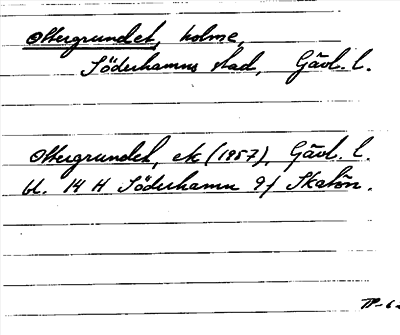 Ottergrundet, holme,
Söderhamns stad, Gävl. l.
Ottergrundet, ek (1957), Gävl. l.
bl. 14 H Söderhamn 9f Skatön.